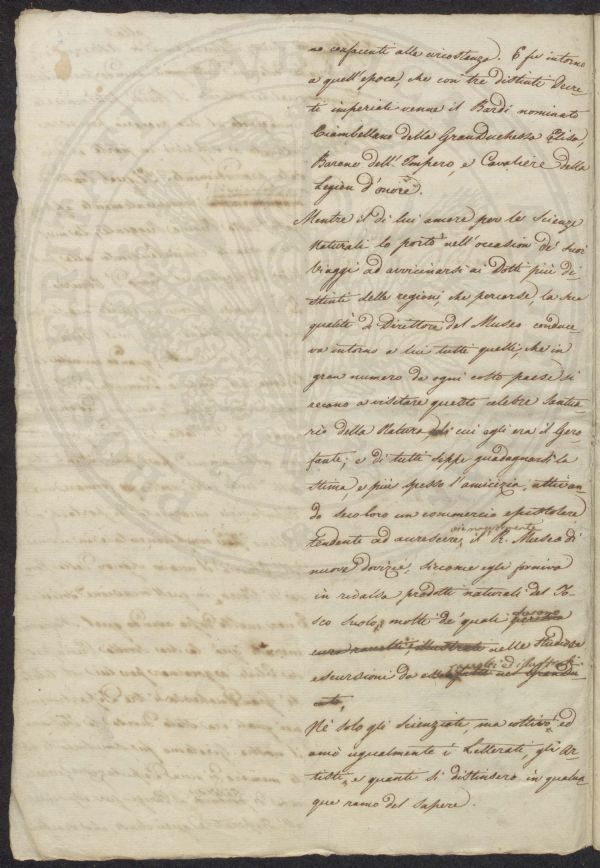 no confacenti alla circostanza. E fu intorno
a quell'epoca, che con tre distinti Decre
ti imperiali venne il Bardi nominato
Ciambellano della GranDuchessa Elisa,
Barone dell'Impero, e Cavaliere della
Legion d'onore.
Mentre il di lui amore per le Scienze
Naturali lo portò nell'occasion de' suoi
viaggi ad avvicinarsi ai Dotti più di
stinti delle regioni, che percorse, la sua
qualità di Direttore del Museo conduce
va intorno a lui tutti quelli, che in
gran numero da ogni colto paese si
recano a visitare questo celebre Santua
rio della Natura di cui egli era il Gero
fante; e di tutti seppe guadagnarsi la
stima, e più spesso l'amicizia, attivan
do seco loro un commercio epistolare
tendente ad accrescere il R. Museo di
nuove dovizie, siccome egli forniva
in ricambio prodotti naturali del To
sco suolo, molti de' quali furono
nelle studiose
escursioni da esso raccolti ed illustrati
Nè solo gli scienziati, ma coltivò ed
amò ugualmente i Letterati, gli Ar
tisti, e quanti si distinsero in qualun
que ramo del sapere.